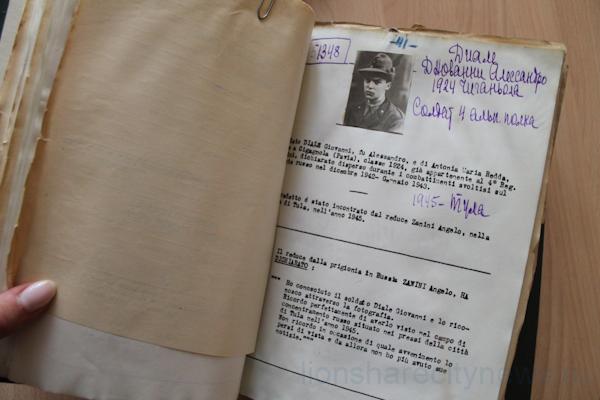 51348
-41-
Диале
Джованни Алессандро
1924 Чиганьола
Солдат 4 альп. полка
DIALE Giovanni, fu Alessandro, e di Antonia Maria Redda,
a Cigagnola (Pavia), classe 1924, già appartenente al 4° Reg.
dichiarato disperso durante i combattimenti svoltisi sul
russo nel dicembre 1942- Gennaio 1943.
1945 - Тула
è stato incontrato dal reduce Zanini Angelo, nella
di Tula, nell'anno 1945.
Il reduce dalla prigionia in Russia ZANINI Angelo, HA
DICHIARATO :
Ho conosciuto il soldato Diale Giovanni e lo rico-
nosco attraverso la fotografia.
Ricordo perfettamente di averlo visto nel campo di
concentramento russo situato nei pressi della città
di Tula nell'anno 1945.
Non ricordo in occasione di quale avvenimento lo
persi di vista e da allora non ho più avuto sue
notizie.